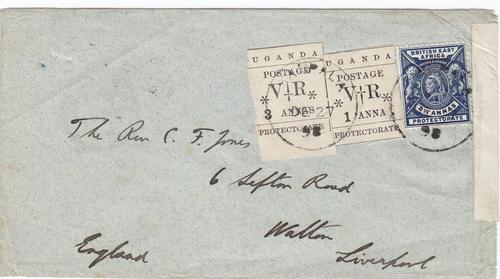 UGANDA
POSTAGE
V+R
3 ANNAS
PROTECTORATE
UGANDA
POSTAGE
V+R
1 ANNA
PROTECTORATE
BRITISH EAST
AFRICA
ANNAS
PROTECTORATE
DE 27
98
98
The Rev C. F. Jones
6 Sefton Road
Walton
Liverpool
England